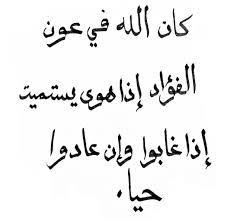 كان الله في عون
الفؤاد إذا هوى يستميت
إذا غابوا وإن عادوا
حياء